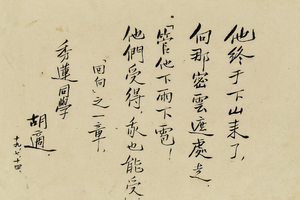 他終于下山来了，
向那密雲遮處走。
「管他下雨下雹！
他們受得，我也能受
「回向」之一章，
秀蓮同學
胡適
十九，七，十四，